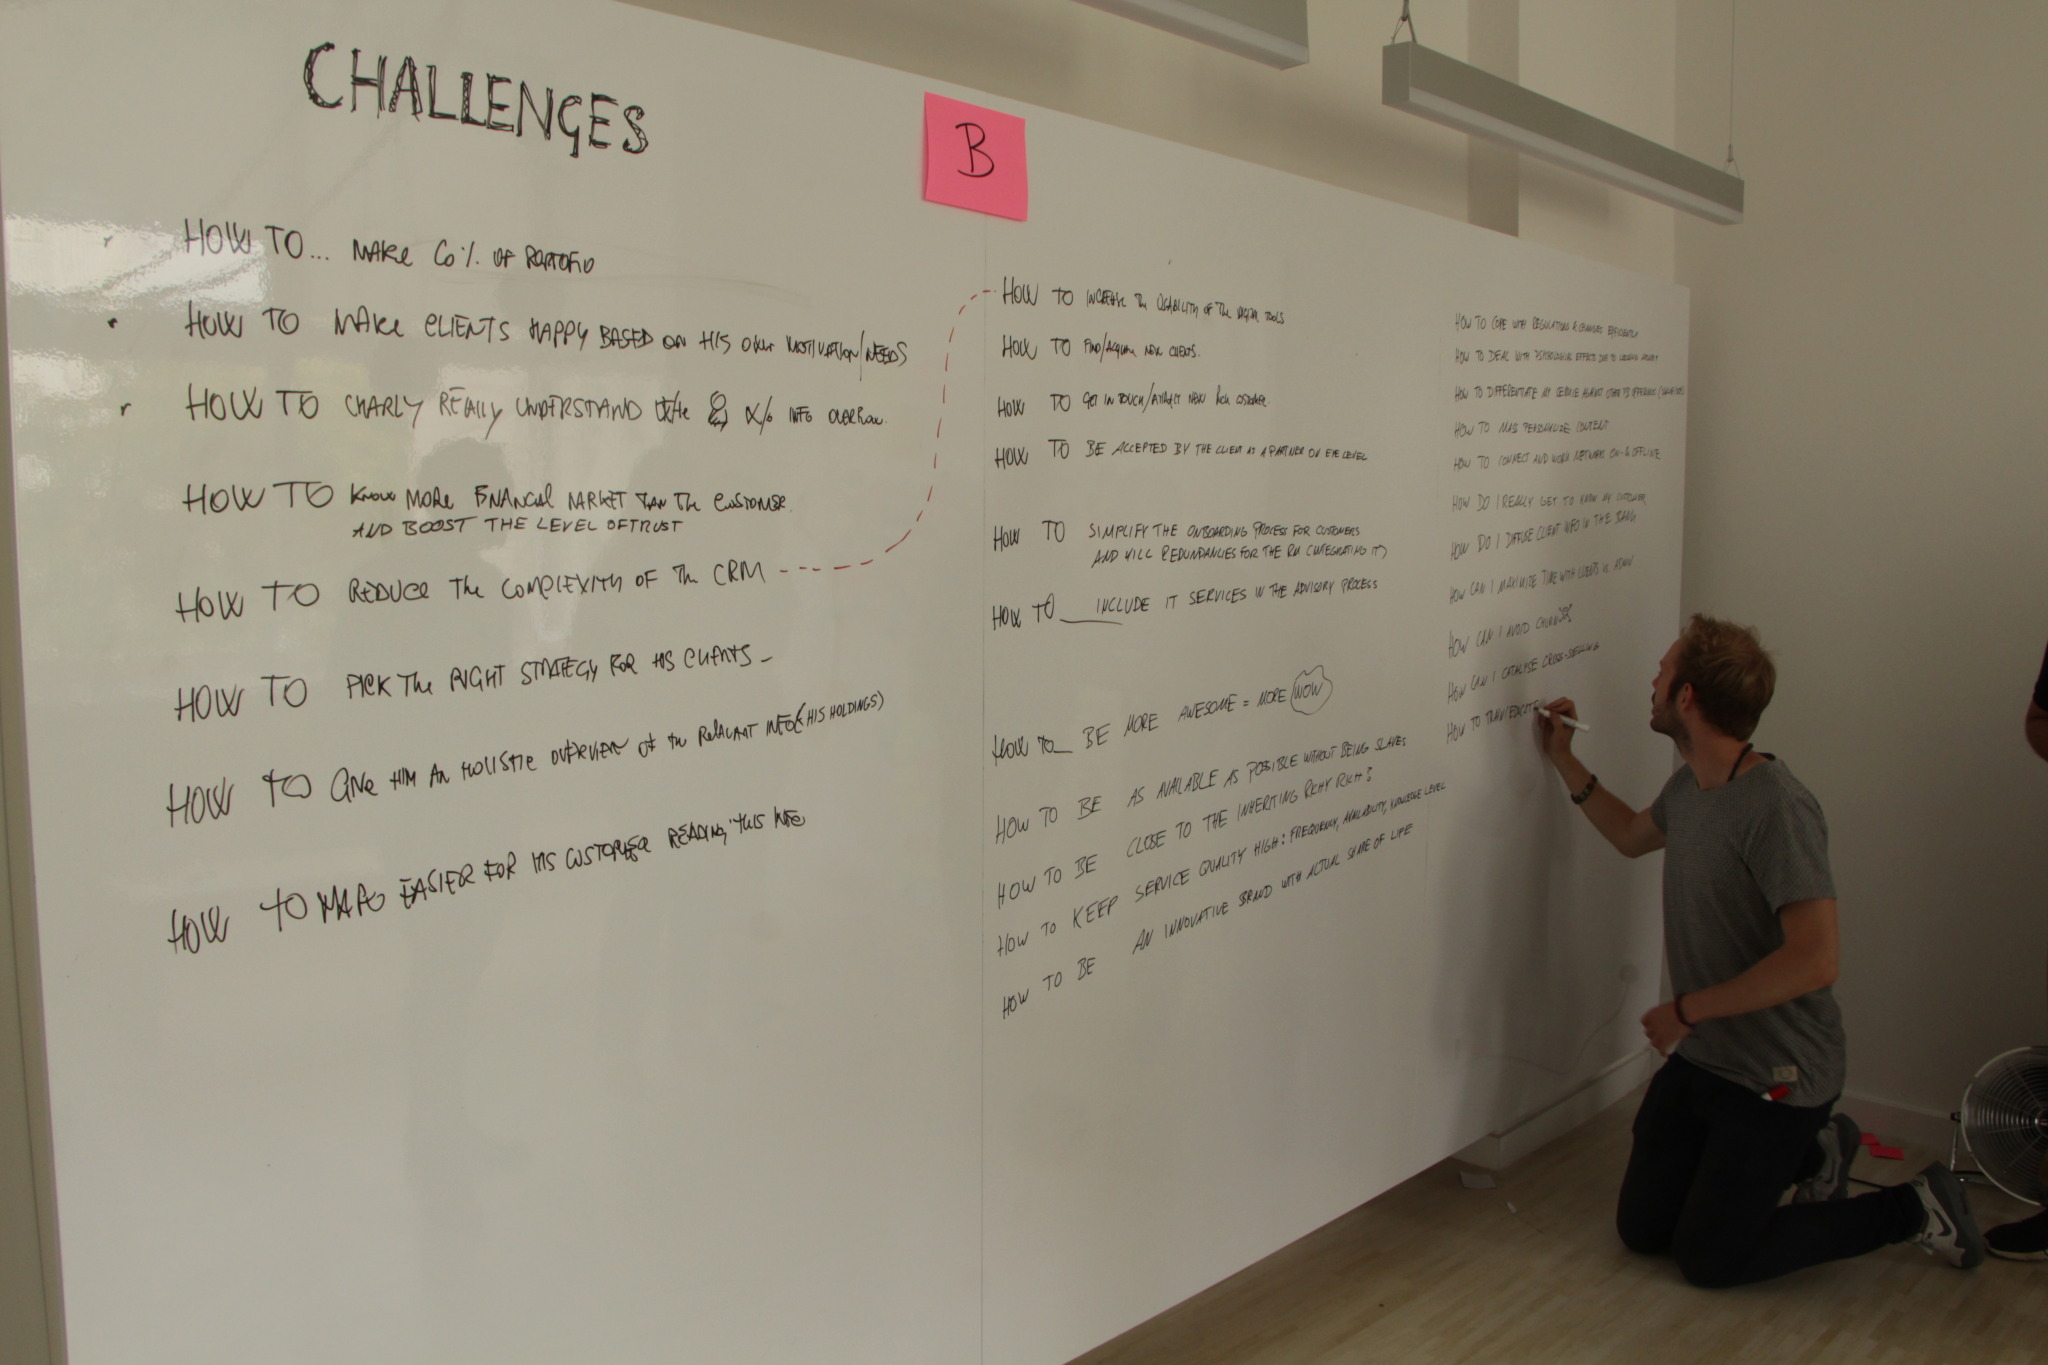 CHALLENGES
B
HOW TO... MAKE 60% OF
HOW TO MAKE CLIENTS HAPPY BASED ON HIS MOTIVATION/NEEDS
HOW TO REALLY UNDERSTAND W/O INFO OVERFLOW.
HOW TO KNOW MORE FINANCIAL MARKET THAN THE CUSTOMER
AND BOOST THE LEVEL OF TRUST
HOW TO REDUCE THE COMPLEXITY OF THE CRM
HOW TO PICK THE RIGHT STRATEGY FOR HIS CLIENTS
HOW TO GIVE HIM AN HOLISTIC OVERVIEW OF THE RELEVANT INFO (HIS HOLDINGS)
HOW TO EASIER FOR HIS CUSTOMER READING THIS INFO
HOW TO INCREASE THE USABILITY OF THE DIGITAL TOOLS
HOW TO FIND/ACQUIRE NEW CLIENTS.
HOW TO GET IN TOUCH/ATTRACT NEW RICH CUSTOMER.
HOW TO BE ACCEPTED BY THE CLIENT AS A PARTNER ON EYE LEVEL
HOW TO SIMPLIFY THE ONBOARDING PROCESS FOR CUSTOMERS
AND KILL REDUNDANCIES FOR THE RM (INTEGRATING IT)
HOW TO ___ INCLUDE IT SERVICES IN THE ADVISORY PROCESS
HOW TO_ BE MORE AWESOME = MORE WOW
HOW TO BE AS AVAILABLE AS POSSIBLE WITHOUT BEING SLAVES
HOW TO BE CLOSE TO THE INHERITING RICHY RICH?
HOW TO KEEP SERVICE QUALITY HIGH: FREQUENCY, AVAILABILITY, KNOWLEDGE LEVEL
HOW TO BE AN INNOVATIVE BRAND WITH ACTUAL SHARE OF LIFE
HOW TO COPE WITH REGULATIONS & CHANGES EFFICIENTLY
HOW TO DEAL WITH PSYCHOLOGICAL EFFECTS DUE TO
HOW TO DIFFERENTIATE MY SERVICE AGAINST OTHER OFFERINGS
HOW TO MASS PERSONALIZE CONTENT
HOW TO CONNECT AND WORK NETWORKS ON- & OFFLINE
HOW DO I REALLY GET TO KNOW MY CUSTOMER
HOW DO I DIFFUSE CLIENT INFO IN THE BANG
HOW CAN I MAXIMIZE TIME WITH CLIENTS VS. ADMIN
HOW CAN I AVOID CHURN
HOW CAN I CATALYSE CROSS-SELLING
HOW TO